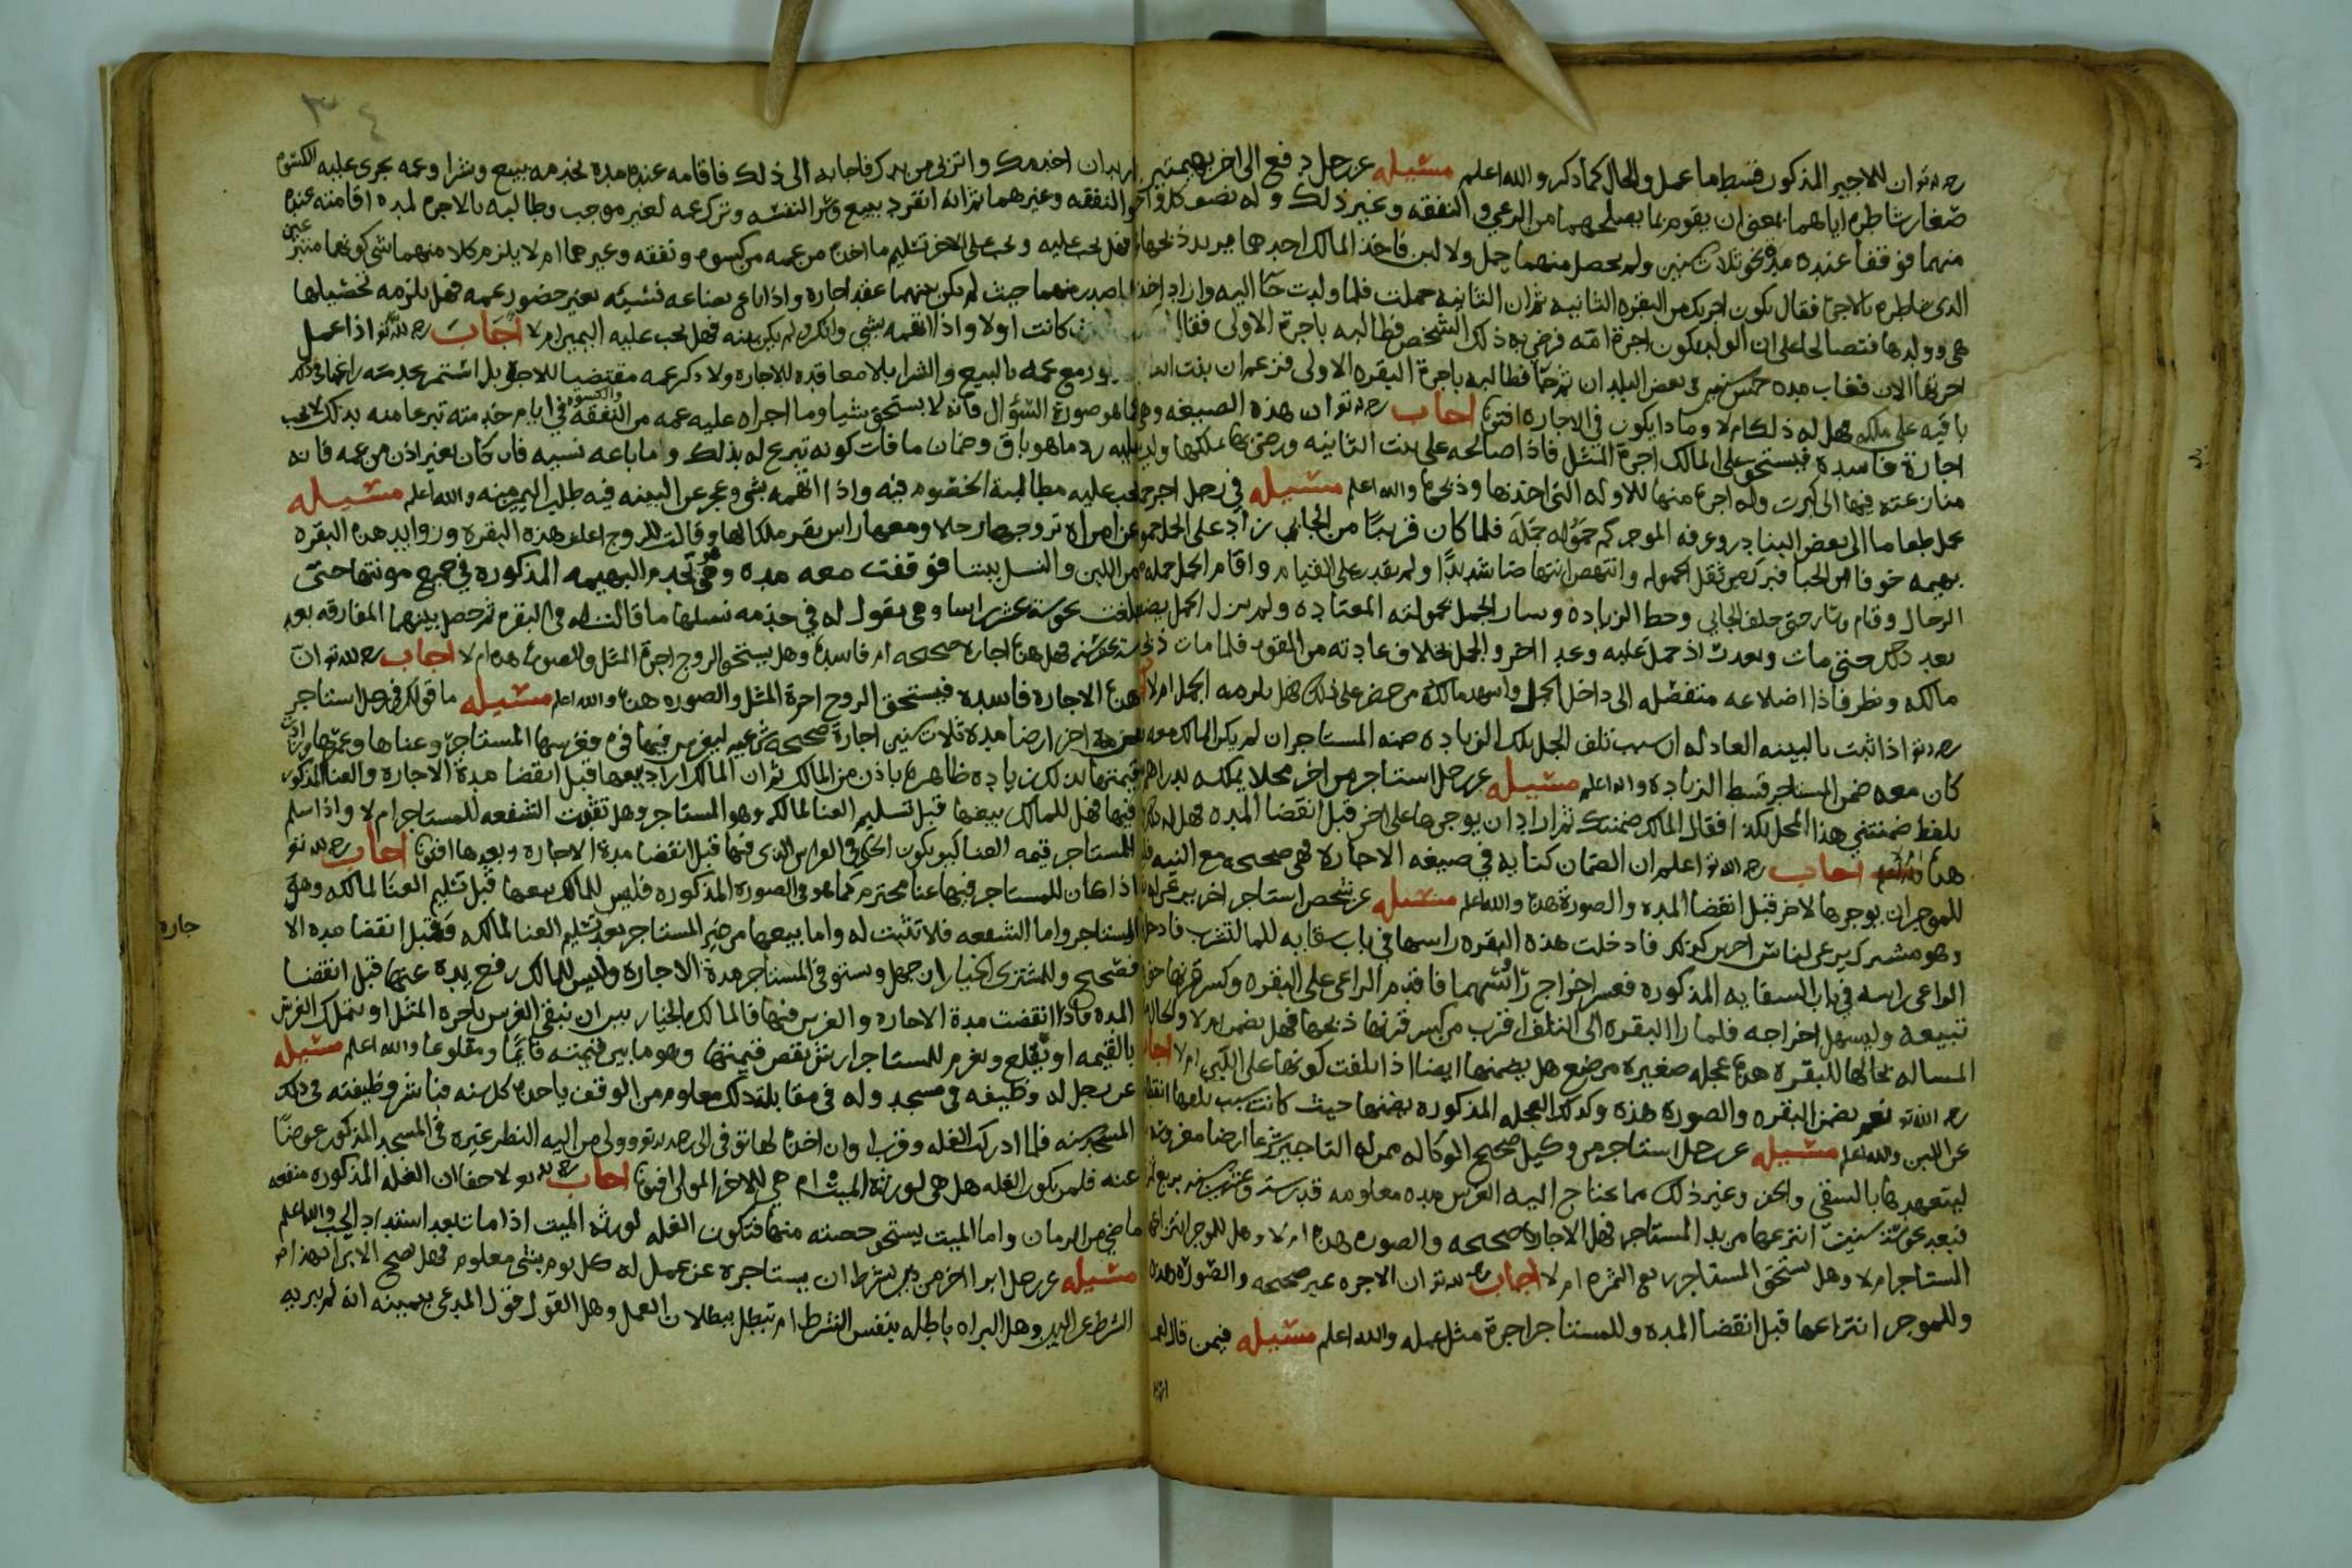 رحمه الله تعالى ان للاجير المذكور قسط ما عمل والحال كما ذكر والله اعلم مسئله عن رجل دفع الى اخر بهيمتين
صغار شاطره اياهما بمعنى ان يقوم بما يصلحهما من الرعي والنفقه وغير ذلك وله نصف كل واحده
منهما فوقفا عنده مده نحو ثلاث سنين ولم يحصل منهما حمل ولا لبن فاخذ المالك احدهما يريد ذبحها
الذي شاطره بالاجره فقال يكون اجرتك من البقره الثانيه ثم ان الثانيه حملت فلما ولدت جا اليه واراد اخذ
هي وولدها فتصالحا على ان الولد يكون اجرة امه فرضي به ذلك الشخص فطالبه باجرة الاولى فقال
اجرتها الان فغاب مده خمس سنين في بعض البلدان ثم جا فطالبه باجرة البقره الاولى فزعم ان بنت
باقيه على ملكه فهل له ذلك ام لا وماذا يكون في الاجاره افتونا اجاب رحمه الله تعالى ان هذه الصيغه
اجارة فاسده فيستحق على المالك اجرة المثل فاذا صالحه على بنت الثانيه ورضي بها ملكها وليس
منازعته فيها الى كبرت وله اجرة منها للاوله التي اخذها وذبحها والله اعلم مسئله في رجل اجر
حمل طعاما الى بعض البنادر وعرفه الموجر كم حموله جمله فلما كان قريبا من الجانبي زاد على الحمل
بهيمه خوفا من الجبا فبرك من ثقل الحموله وانتهض انتهاضا شديدا ولم يقدر على القيام واقام الحمل
الرحال وقام وسار حتى خلف الجابي وحط الزياده وسار الجمل بحمولته المعتاده ولم يزل الجمل
بعد ذلك حتى مات وبعدت اذ حمل عليه وعبد الاخر والجمل بخلاف عادته من القوه فلما مات
مالكه ونظر فاذا اضلاعه منفصله الى داخل الجمل واشهد مالكه من حضر على ذلك فهل يلزمه الجمل ام لا
رحمه الله تعالى اذا ثبت بالبينه العادله ان سبب تلف الجمل تلك الزياده ضمنه المستاجر ان لم يكن المالك معه
كان معه ضمن المستاجر قسط الزياده والله اعلم مسئله عن رجل استاجر من اخر محلا يملكه بدراهم
بلفظ ضمنتني هذا المحل بكذا فقال المالك ضمنتك ثم اراد ان يوجرها على اخر قبل انقضا المده فهل له
هذا اجاب رحمه الله تعالى اعلم ان الضمان كنايه في صيغه الاجاره فهي صحيحه مع النيه
للموجر ان يوجرها لاخر قبل انقضا المده والصورة هذه والله اعلم مسئله عن شخص استاجر اخر يرعى له
وهو مشترك يرعى لناس اخرين كذلك فادخلت هذه البقره راسها في باب سقايه للما لتشرب فادخل
الراعي راسه في باب السقايه المذكوره فعسر اخراج راسيهما فاقدم الراعي على البقره وكسر قرنها
تبيعه وليسهل اخراجه فلما را البقره الى التلف اقرب من كسر قرنها ذبحها فهل يضمن ام لا والحاله
المساله بحالها للبقره هذه عجله صغيره مرضع هل يضمنها ايضا اذا تلفت كونها على اللبن ام لا اجاب
رحمه الله تعالى نعم يضمن البقره والصورة هذه وكذلك العجله المذكوره يضمنها حيث كانت سبب تلفها
عن اللبن والله اعلم مسئله عن رجل استاجر من وكيل صحيح الوكاله ممن له التاجير شرعا ارضا مغروسه
ليتعهدها بالسقي والحرث وغير ذلك مما يحتاج اليه الغرس مده معلومه قدر ستة وعشرين سنه بربع
فبعد نحو ستة سنين انتزعها من يد المستاجر فهل الاجاره صحيحه والصوره هذه ام لا وهل للموجر انتزاعها
المستاجر ام لا وهل يستحق المستاجر ربع الثمره ام لا اجاب رحمه الله تعالى ان الاجره غير صحيحه والصورة هذه
وللموجر انتزاعها قبل انقضا المده وللمستاجر اجرة مثل عمله والله اعلم مسئله فيمن قال
اريد ان اخدمك واتزبى من يدك فاجابه الى ذلك فاقامه عنده مدة يخدمه ببيع وشرا وعمه يجري عليه الكسوه
والنفقه وغيرهما ثم انه انفرد ببيع وشرا لنفسه وترك عمه لغير موجب وطالبه بالاجره لمده اقامته عنده
فهل يجب عليه ويجب على الاخر تسليم ما اخذه من عمه من كسوه ونفقه وغيرهما ام لا يلزم كلا منهما شي كونهما متبرعين
بما صدر منهما حيث لم يكن بينهما عقد اجاره واذا باع بضاعه نسيه بغير حضور عمه فهل يلزمه تحصيلها
كانت اولا واذا اتهمه بشي وانكره ولم يكن بينه فهل يجب عليه اليمين ام لا اجاب رحمه الله تعالى اذا عمل
مع عمه بالبيع والشرا بلا معاقده للاجاره ولا ذكر عمه مقتضيا للاجره بل استمر بخدمته
كما هو صورة السؤال فانه لا يستحق شيا وما اجراه عليه عمه من النفقه والكسوه في ايام خدمته تبرعا منه بذلك لا يجب
عليه رد ما هو باق وضمان ما فات كونه تبرع له بذلك واما ما باعه نسيه فان كان بغير اذن من عمه فانه
يجب عليه مطالبة الخصوم فيه واذا اتهمه بشي وعجز عن البينه فيه طلب اليمين منه والله اعلم مسئله
عن امراه تزوجها رجلا ومعها راس بقر ملكا لها وقالت للزوج اعلف هذه البقره وزوايد هذه البقره
من اللبن والنسل بيننا فوقفت معه مده وهي تخدم البهيمه المذكوره في جميع مونتها حتى
بلغت نحو ستة عشر راسا وهي تقول له في خدمه نسلها ما قالت له في البقره ثم حصل بينهما المفارقه بعد
ستة عشر سنه فهل هذه اجاره صحيحه ام فاسده وهل يستحق الزوج اجرة المثل والصوره هذه ام لا اجاب رحمه الله تعالى ان
هذه الاجاره فاسده فيستحق الزوج اجرة المثل والصوره هذه والله اعلم مسئله ما قولكم في رجل استاجر
من اخر ارضا مدة ثلاث سنين اجارة صحيحة شرعيه ليغرس فيها فوه فغرسها المستاجر وعناها وعمرها وزادت
قيمتها بذلك زياده ظاهره باذن من المالك ثم ان المالك اراد بيعها قبل انقضا مدة الاجاره والعنا المذكور
فيها فهل للمالك بيعها قبل تسليم العنا لمالكه وهو المستاجر وهل تثبت الشفعه للمستاجر ام لا واذا سلم
المستاجر قيمه العنا كيف يكون الحكم في الغراس الذي فيها قبل انقضا مدة الاجاره وبعدها افتونا اجاب رحمه الله تعالى
اذا كان للمستاجر فيها عنا محترم كما هو في الصوره المذكوره فليس للمالك بيعها قبل تسليم العنا لمالكه وهو
المستاجر واما الشفعه فلا تثبت له واما بيعها من غير المستاجر بعد تسليم العنا لمالكه وقبل انقضا مده الا
جاره
فصحيح وللمشتري الخيار ان جهل ويستوفي المستاجر مدة الاجاره وليس للمالك رفع يده عنها قبل انقضا
المده فاذا انقضت مدة الاجاره والغرس فيها فالمالك بالخيار بين ان يبقي الغرس باجره المثل او يتملك الغرس
بالقيمه او يقلع ويغرم للمستاجر ارش نقص قيمتها وهو ما بين قيمته قائما ومقلوعا والله اعلم مسئله
عن رجل له وظيفه في مسجد وله في مقابلة ذلك معلوم من الوقف ياخذه كل سنه فباشر وظيفته في ذلك
المسجد سنه فلما ادركت الغله وقرب اوان اخذه لها توفي الى رحمة الله تعالى وولى من اليه النظر غيره في المسجد المذكور عوضا
عنه فلمن يكون الغله هل هي لورثة الميت ام هي للاخر المولى افتونا اجاب رحمه الله تعالى لا خفا ان الغله المذكوره منفعه
ما مضى من الزمان واما الميت يستحق حصته منها فتكون الغله لورثه الميت اذا مات بعد اشتداد الحب والله اعلم
مسئله عن رجل ابرا اخر من دين بشرط ان يستاجره عن عمل له كل يوم بشي معلوم فهل يصح الابرا بهذا
الشرط عن الدين وهل البراه باطله بنفس الشرط ام تبطل ببطلان العمل وهل القول قول المدعي بيمينه انه لم يبريه